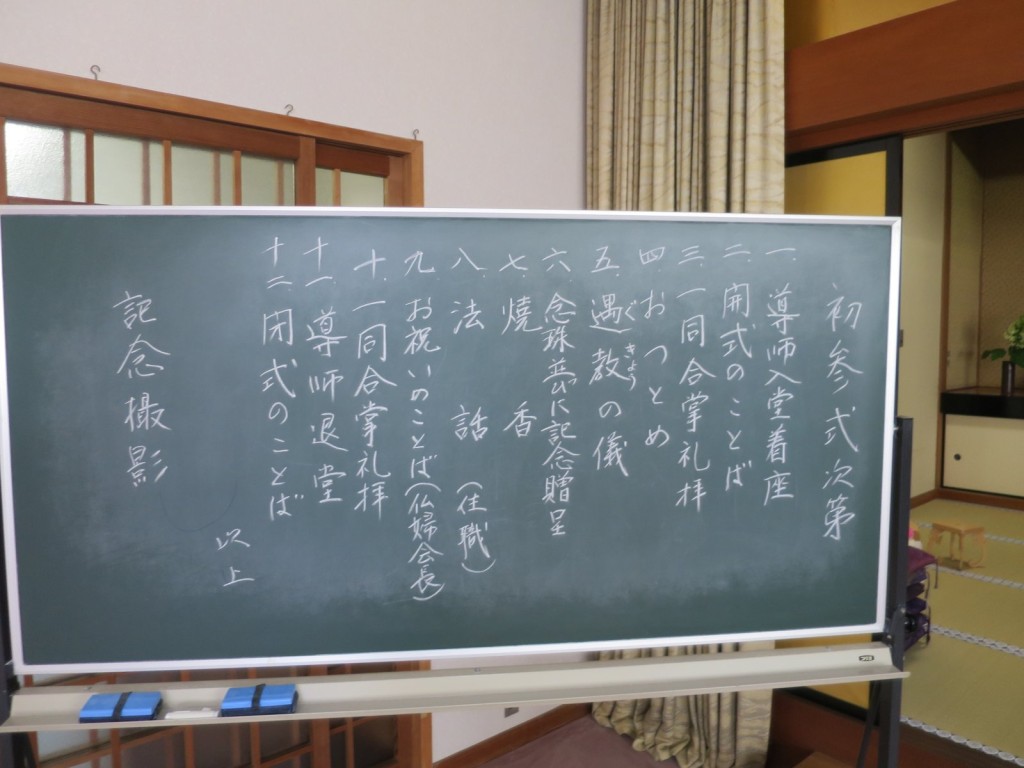 初参式次第
一、導師入堂着座
二、開式のことば
三、一同合掌礼拝
四、おつとめ
五、遇教の儀
ぐきょう
六、念珠並びに記念贈呈
七、焼香
八、法話（住職）
九、お祝いのことば（仏婦会長）
十、一同合掌礼拝
十一、導師退堂
十二、閉式のことば
以上
記念撮影